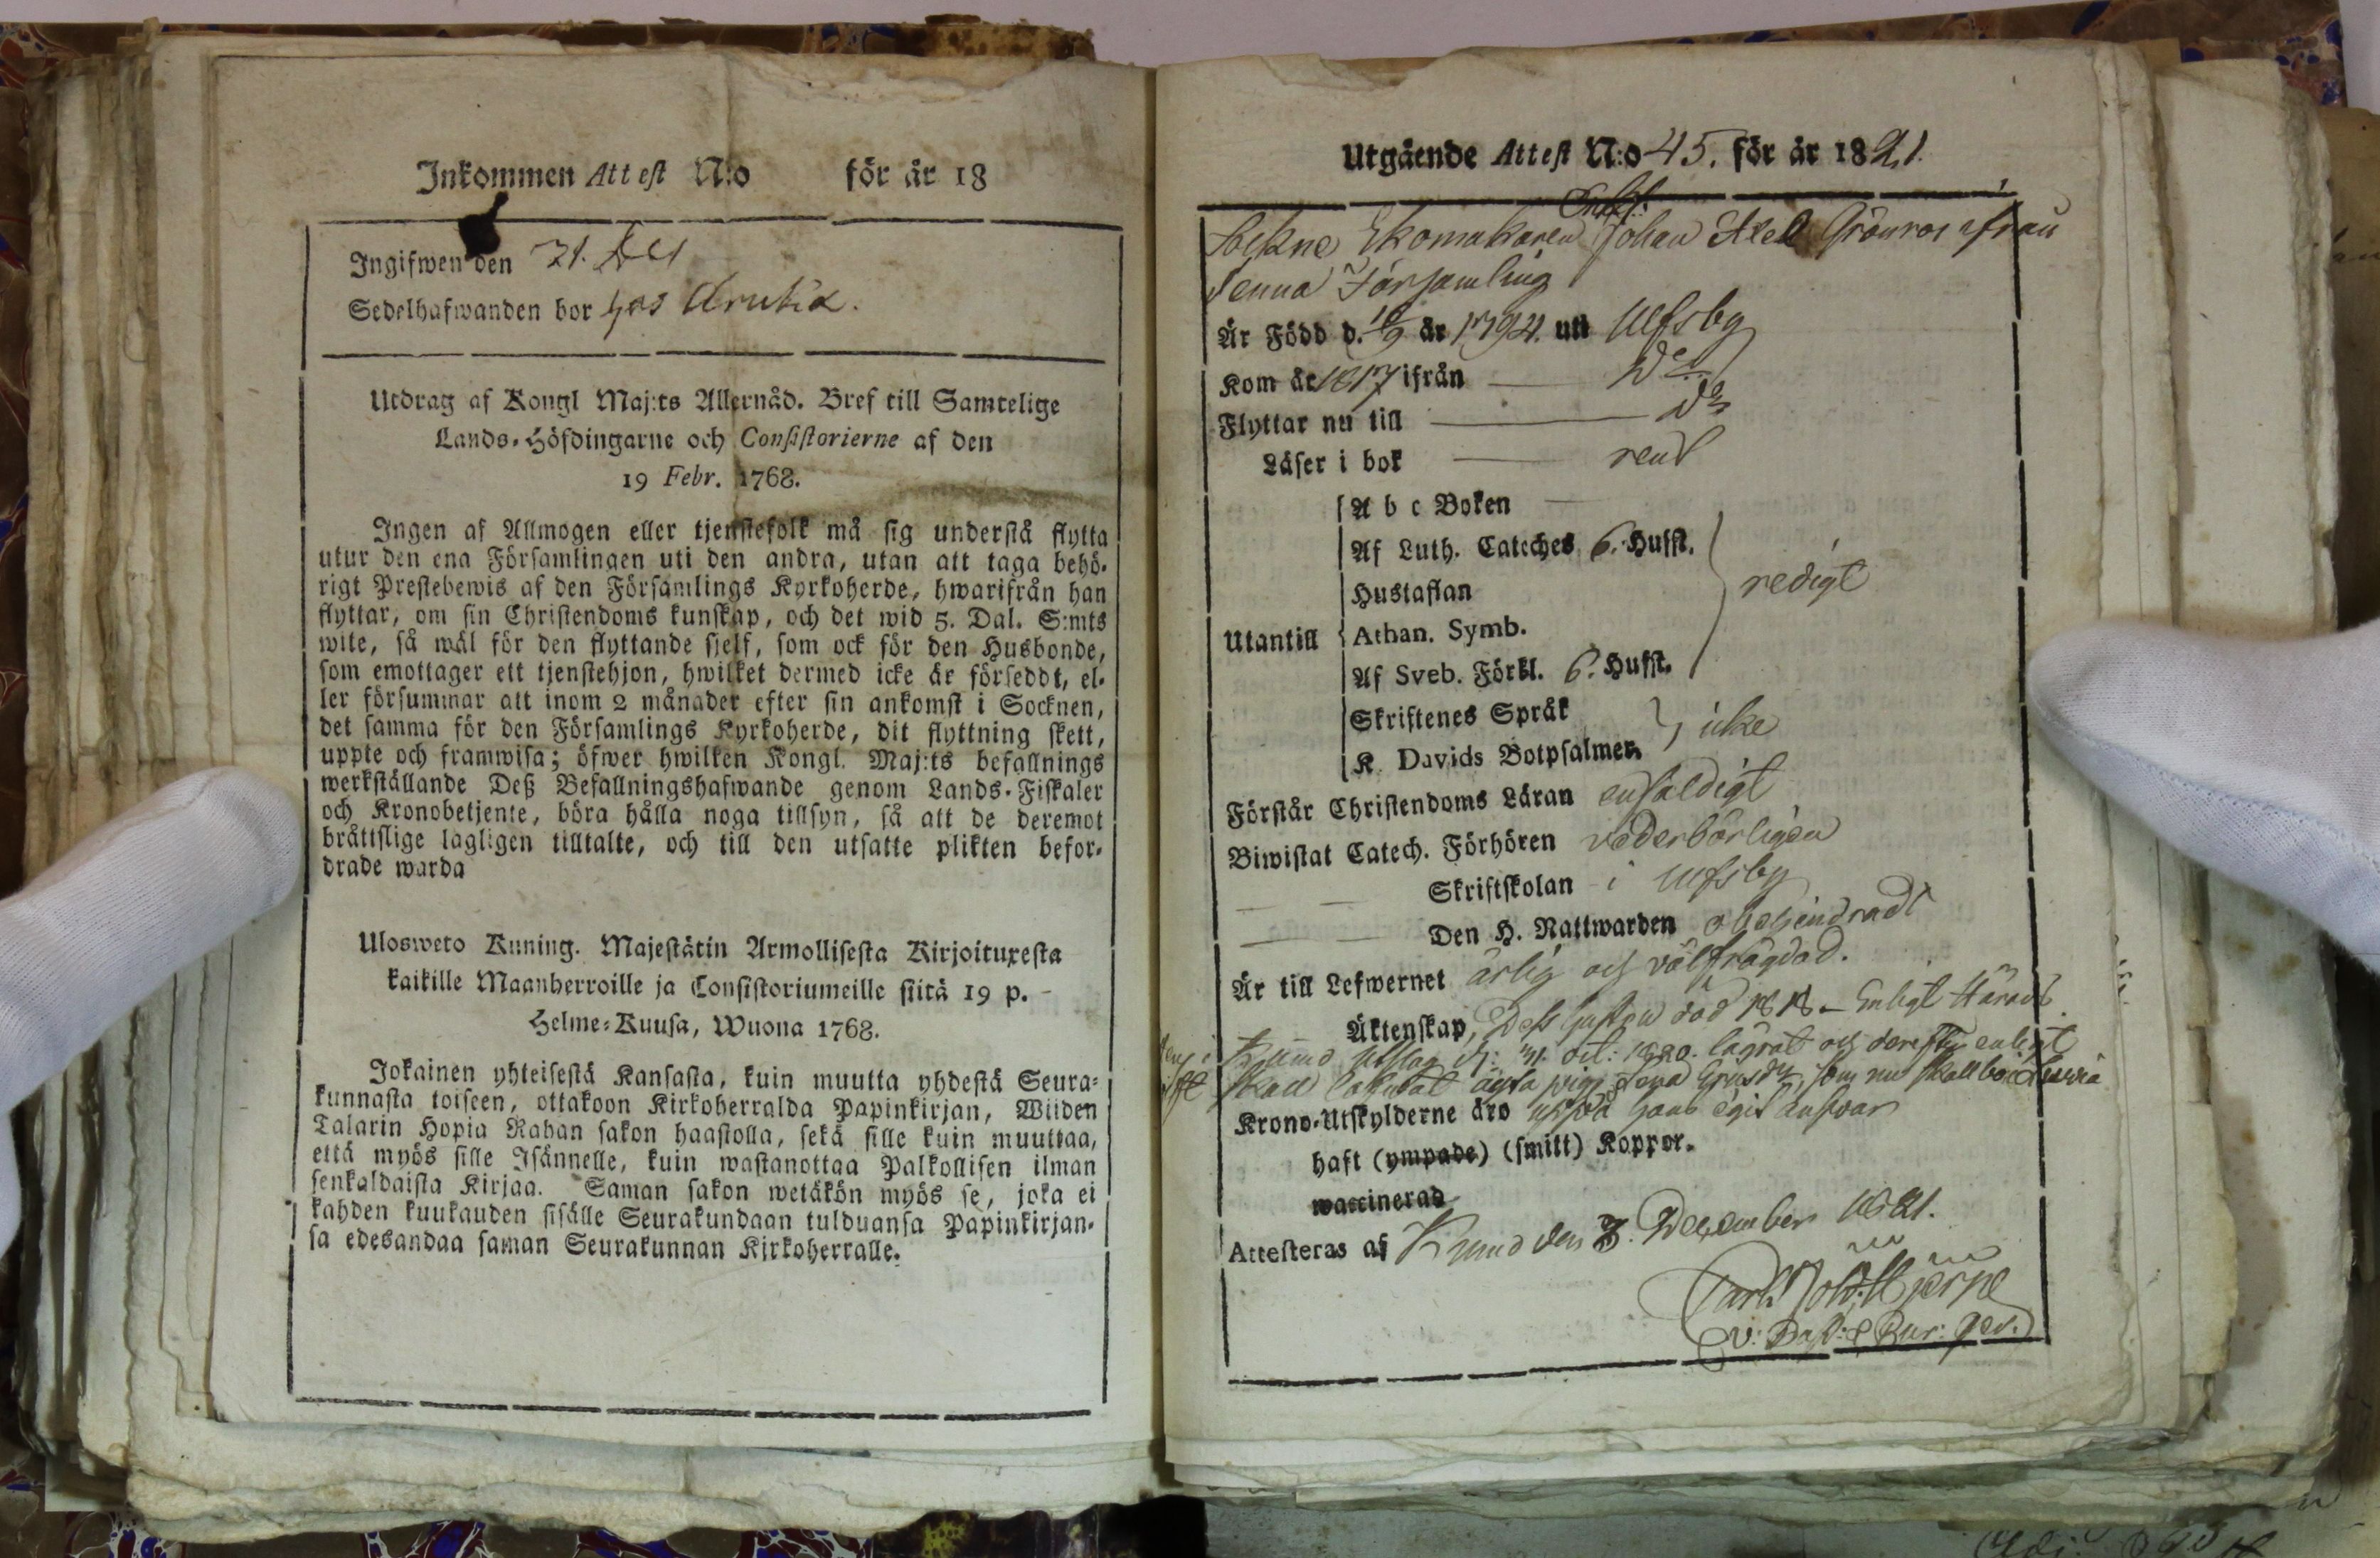 Inkommen Attest N:o för år 18
Ingifwen den 21. Dec
Sedelhafwanden bor hos
Utdrag af Kongl Maj:ts Allernåd. Bref till Samtelige
Lands-Höfdingarne och Consistorierne af den
19 Febr. 1768.
Ingen af Allmogen eller tjenstefolk må sig understå flytta
utur den ena Församlingen uti den andra, utan att taga behö-
rigt Prestebewis af den Församlings Kyrkoherde, hwarifrån han
flyttar, om sin Christendoms kunskap, och det wid 5. Dal. S:mts
wite, så wäl för den flyttande sjelf, som ock för den Husbonde,
som emottager ett tjenstehjon, hwilket dermed icke är förseddt, el-
ler försummar att inom 2 månader efter sin ankomst i Socknen,
det samma för den Församlings Kyrkoherde, dit flyttning skett,
uppte och framwisa; öfwer hwilken Kongl. Maj:ts befallnings
werkställande Deß Befallningshafwande genom Lands-Fiskaler
och Kronobetjente, böra hålla noga tillsyn, så att de deremot
bråttslige lagligen tilltalte, och till den utsatte plikten befor-
drade warda
Ulosweto Kuning. Majestätin Armollisesta Kirjoituxesta
kaikille Maanherroille ja Consistoriumeille siitä 19 p.
Helme-Kuusa, Wuona 1768.
Jokainen yhteisestä Kansasta, kuin muutta yhdestä Seura-
kunnasta toiseen, ottakoon Kirkoherralda Papinkirjan, Wiiden
Talarin Hopia Rahan sakon haastolla, sekä sille kuin muuttaa,
että myös sille Isännelle, kuin wastanottaa Palkollisen ilman
senkaldaista Kirjaa. Saman sakon wetäkön myös se, joka ei
kahden kuukauden sisälle Seurakundaan tulduansa Papinkirjan-
sa edesandaa saman Seurakunnan Kirkoherralle.
Utgående Attest N:o 45. för år 1821.
Enkl:
Sokne Skomakaren Johan Axel Grönroos ifrån
denna Församling
Är Född d. 10/9 år 1794. uti Ulfsby
Kom år 1817 ifrån — Do
Flyttar nu till — Do
Läser i bok — rent
A b c Boken —
Af Luth. Cateches 6. Hufst.
Hustaflan redigt
Utantill Athan. Symb.
Af Sveb. Förkl. 6. Hufst.
Skriftenes Språk
K. Davids Botpsalmer. icke
Förstår Christendoms Läran enfaldigt
Biwistat Catech. Förhören vederbörligen
— — Skriftskolan i Ulfsby
— — Den H. Nattwarden obehindradt
Är till Lefwernet ärlig och välfrägdad.
Äktenskap, Dess hustru död 1818 – Enligt Härads
Kumo Utslag d: 31. Oct: 1820. lagrat och derefter enligt
skall äkta pig: Lena som nu skall bo i
Krono-Utskylderne äro uppå hans egit answar
haft (ympade) (smitt) Koppor.
waccinerad
Attesteras af Kumo den 3. December 1821.
v: Past: